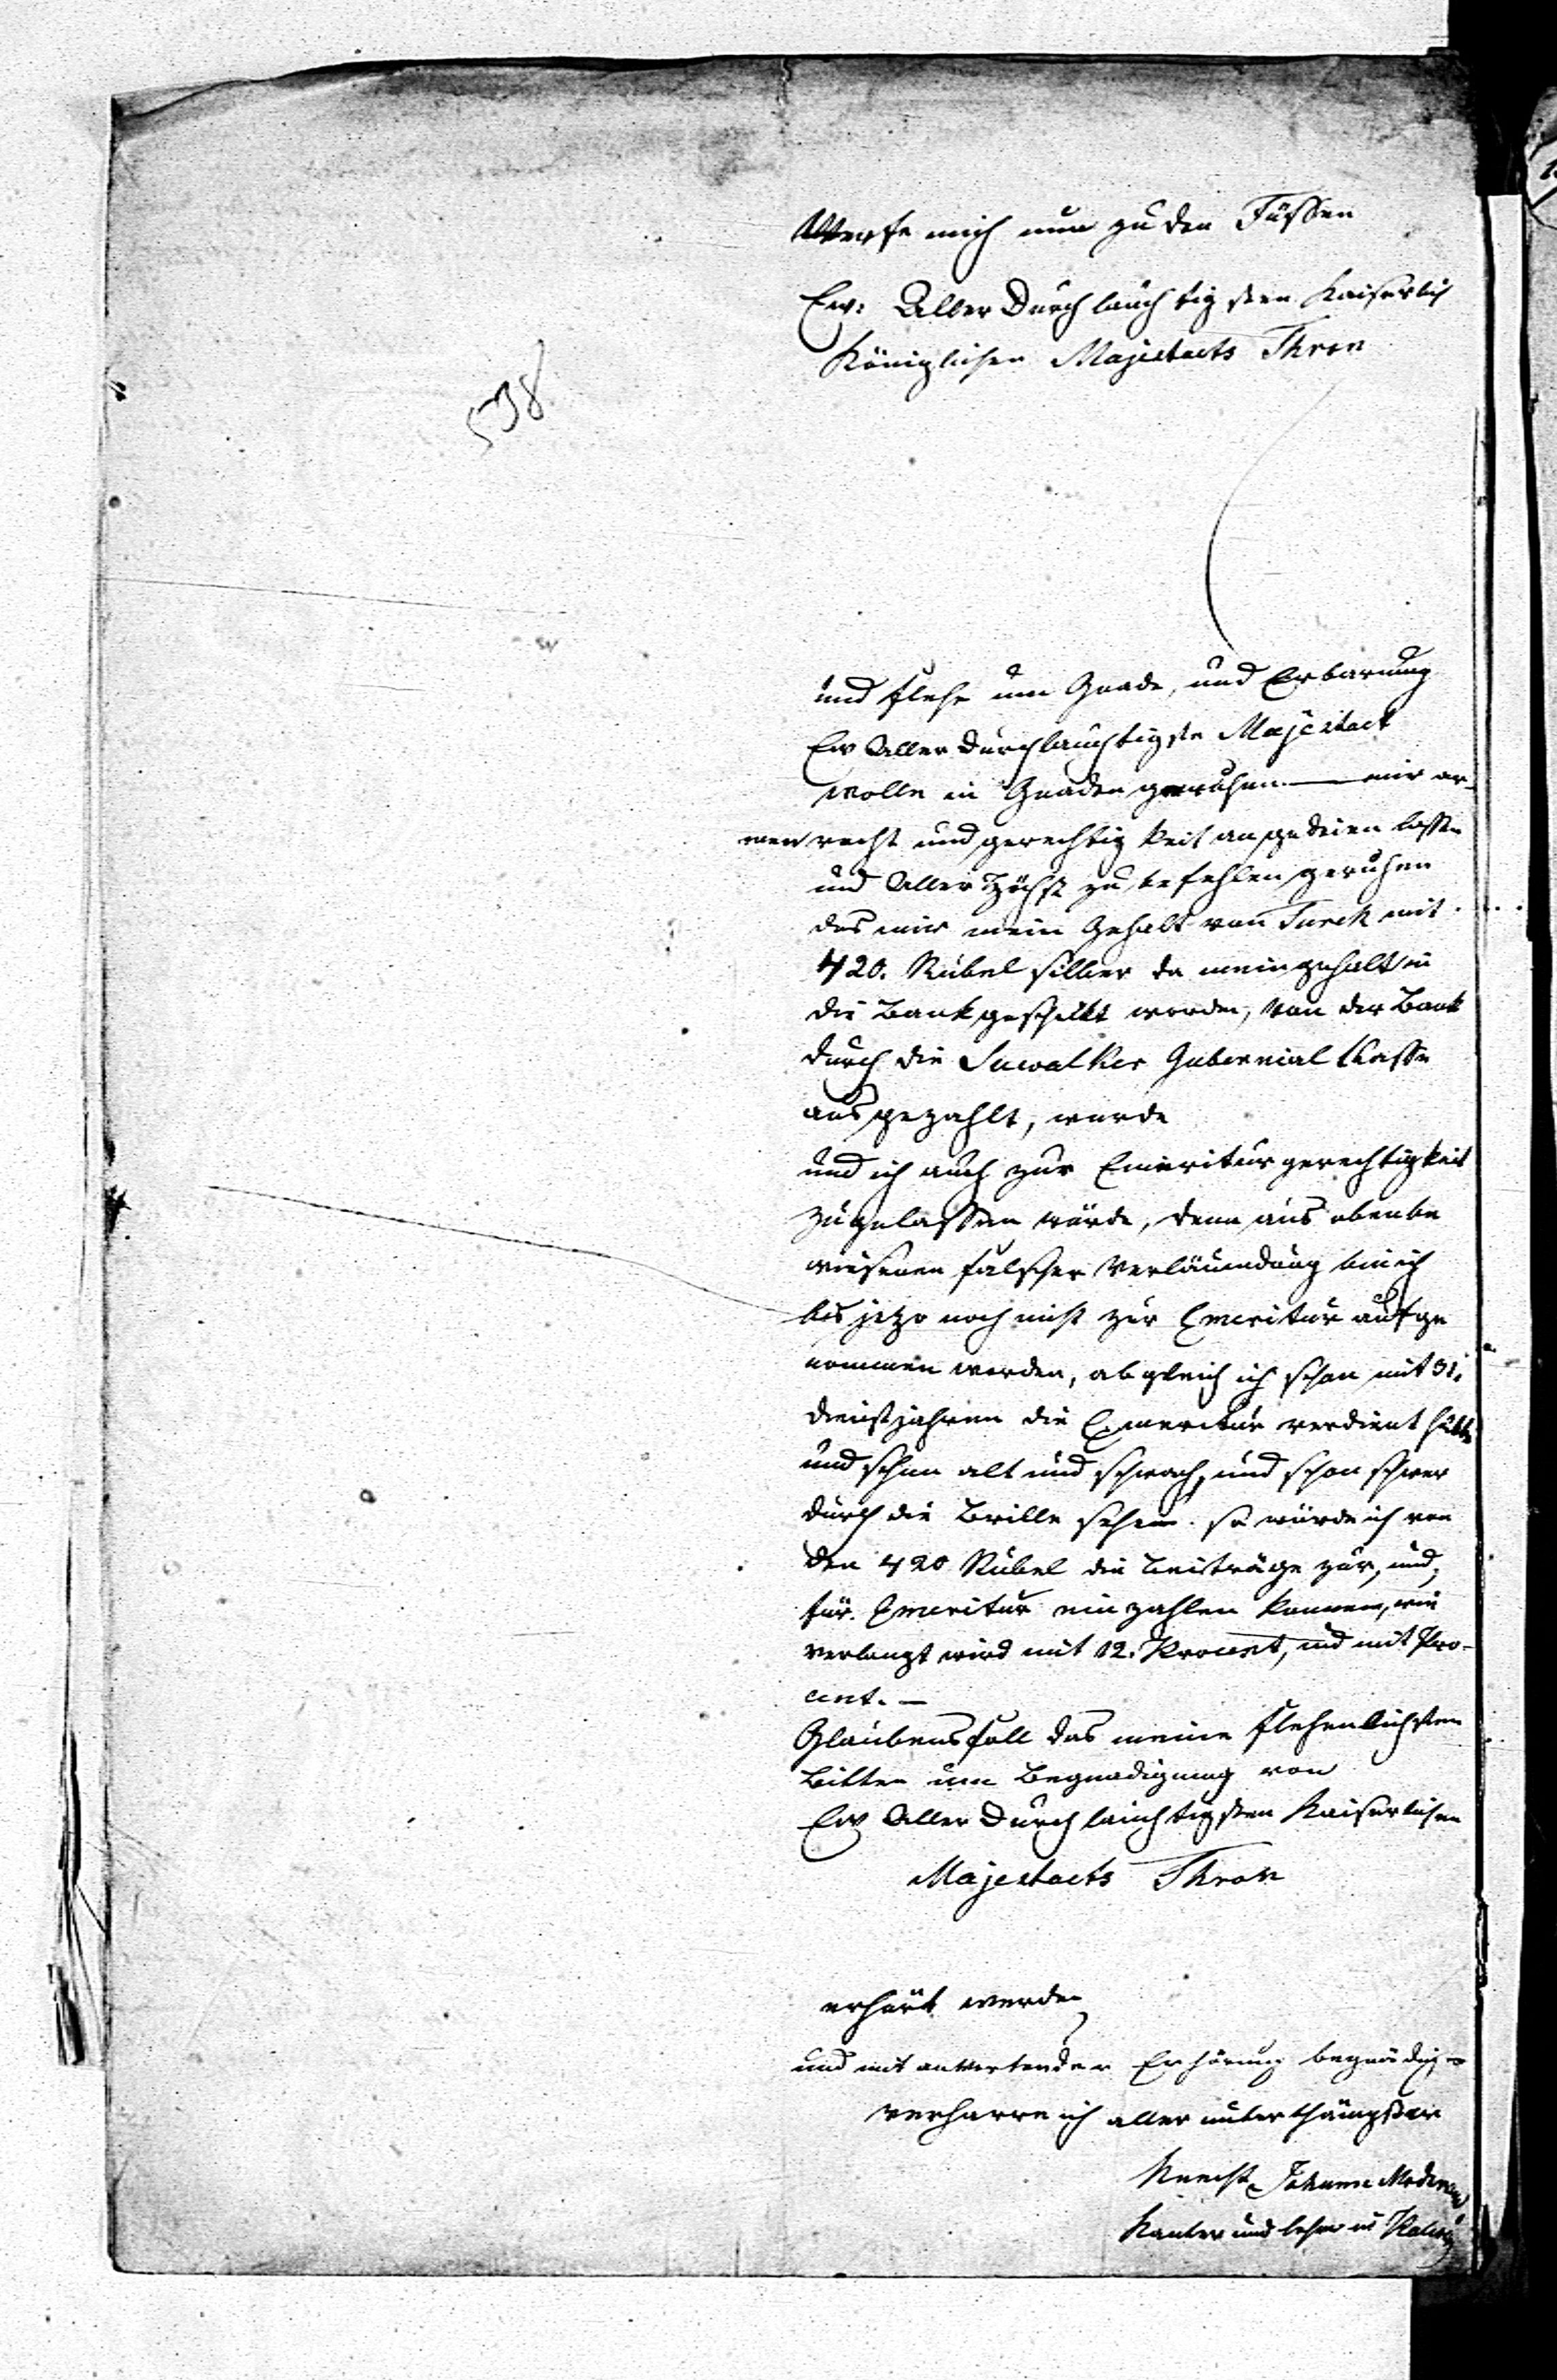 Werfe mich nun zu den Füssen
Ew: Aller Durchlauchtigsten Kaiserlich
Königlichen Majestaets Thron
538
und flehe um Gnade, und Erbarmung
Ew Aller Durchlauchtigste Majestaet
wolle in Gnaden geruhen — mir ar-
men recht und gerechtigkeit angedeien lassen
und Aller Höchst zu befehlen geruhen
das mir mein Gehalt von Turek mit
420. Rubel silber da mein gehalt in
die Bank geschikt worden, von der Bank
durch die Suwalker Gubernial Kasse
ausgezahlt, werde
und ich auch zur Emeritur gerechtigkeit
zugelassen würde, denn aus obenbe
wiesenen falscher Verläumdung bin ich
bis jezo noch nicht zur Emeritur aufge
nommen worden, obgleich ich schon mit 31.
dienstjahren die Emeritur verdient hätte
und schon alt und schwach, und schon schwer
durch die Brille sehen. so würde ich von
den 420 Rubel die Beiträge zur, und,
für Emeritur einzahlen können, wie
verlangt wird mit 12. Procent, und mit Pro-
cent. —
Glaubensfoll das meine flehenlichsten
Bitten um Begnadigung von
Ew Aller Durchlauchtigsten Kaiserlichen
Majestaets Thron
erhört werden
und mit Erhörung
verharre ich aller unterthänigster
Knecht Johann
Kantor und lehrer in